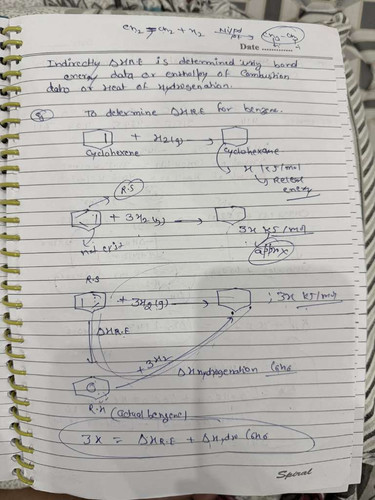 CH2 = CH2 + H2 Ni/Pd Pt CH3-CH3
Date
Indirectly ΔHR.E is determined using bond
energy data or enthalpy of Combustion
data or Heat of Hydrogenation.
To determine ΔHR.E for benzene.
+ H2(g) →
cyclohexene
cyclohexane
x kJ/mol
Release
energy
R.S
+ 3H2(g) →
3x kJ/mol
not exist
approx
R.S
+ 3H2(g) → ; 3x kJ/mol
ΔHR.E
+ 3H2
ΔHhydrogenation C6H6
R.H (actual benzene)
3x = ΔHR.E + ΔHydr C6H6
Spiral